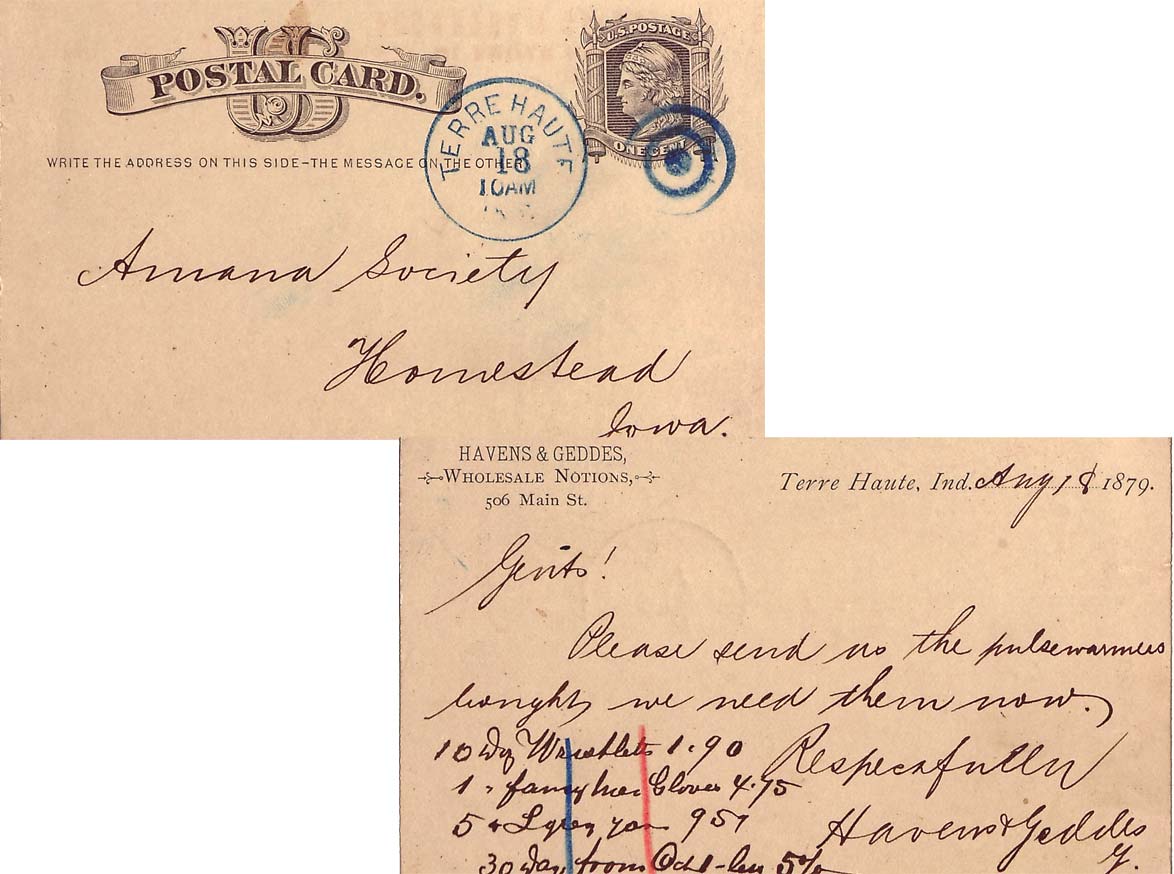 US
POSTAL CARD.
WRITE THE ADDRESS ON THIS SIDE–THE MESSAGE ON THE OTHER
U.S. POSTAGE
ONE CENT
TERRE HAUTE
AUG
18
10AM
Amana Society
Homestead
Iowa.
HAVENS & GEDDES,
WHOLESALE NOTIONS,
506 Main St.
Terre Haute, Ind. Aug 18 1879.
Gents!
Please send us the pulsewarmers
bought, we need them now.
Respecafully
Havens & Geddes
10 Doz Wristlets 1.90
1 " fancy Gloves 4.75
5 95
30 Day from Oct 1 - less 5%